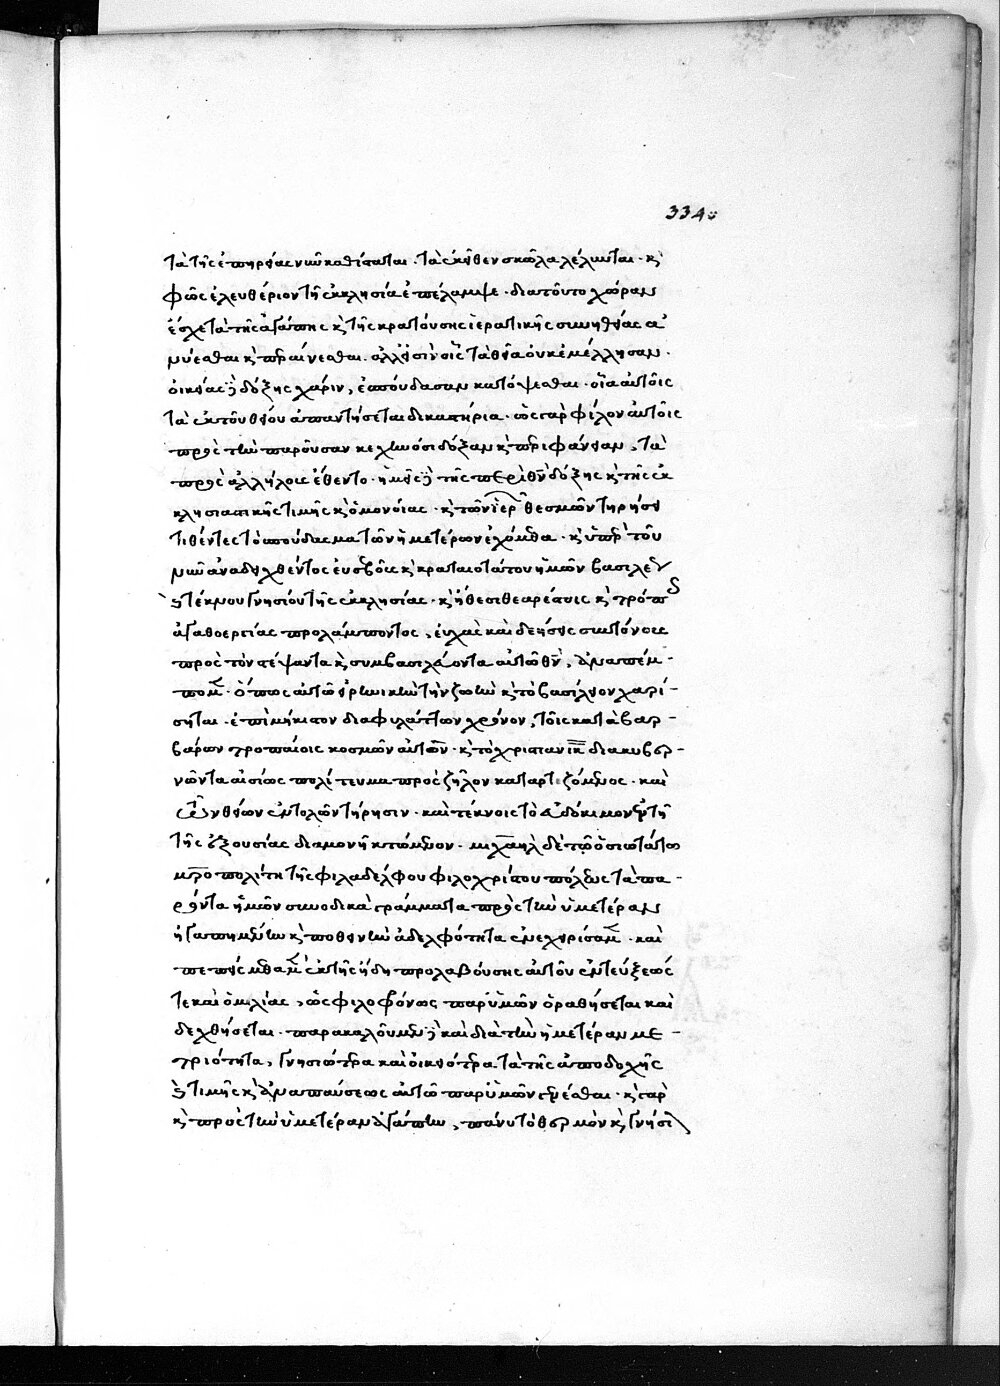 334
τὰ τῆς ἐπηρείας νῦν καθίσταται. τὰ ἐκεῖθεν σκῶλα λέλυται. κ̀
φῶς ἐλευθέριον τῇ ἐκκλησίᾳ ἐπέλαμψε. διατοῦτο χώραν
ἔσχε τὰ τῆς ἀγάπης κ̀ τῆς κρατούσης ἱερατικῆς συνηθείας
οἰκείας δόξης χάριν, ἐσπούδασαν κατόψεσθαι. οἷα αὐτοῖς
τὰ ἐκ τοῦ θείου ἀπαντήσεται δικαστήρια. ὡς γὰρ φίλον αὐτοῖς
πρὸς τὴν παροῦσαν κεχηνόσι δόξαν κ̀ περιφάνειαν, τὰ
πρὸς ἀλλήλους ἔθεντο. ἡμεῖς τῆς περὶ θν̅ δόξης κ̀ τῆς ἐκ
κλησιαστικῆς τιμῆς κ̀ ὁμονοίας. κ̀ τῶν ἱερ θεσμῶν τηρήσει
τιθέντες τὸ σπούδασμα τῶν ἡμετέρων εὐχόμεθα. κ̀ ὑπὲρ τοῦ
νῦν ἀναδειχθέντος εὐσεβοῦς κ̀ κραταιοτάτου ἡμῶν βασιλέ
τέκνου γνησίου τῆς ἐκκλησίας. κ̀ ἠθεσι θεαρέστοις κ̀ τρόπ
ἀγαθοεργίας προλάμποντος, εὐχὰς καὶ δεήσεις συντόνους
πρὸς τὸν στέψαντα κ̀ συμβασιλεύοντα αὐτῶ θν̅, ἀναπέμ-
πομεν. ὅπως αὐτῶ εἰρηνικὴν τὴν ζωὴν κ̀ τὸ βασίλειον χαρί-
σηται. ἐπὶ μήκιστον διαφυλάττων χρόνον, τοῖς κατὰ βαρ-
βάρων τροπαίοις κοσμῶν αὐτὸν. κ̀ τὸ χριστιανικ διακυβερ-
νῶντα αἰσίως πολίτευμα πρὸς ζῆλον καταρτιζόμενος. καὶ
τῶν θείων ἐντολῶν τήρησιν. καὶ τέκνοις τὸ εὐδόκιμον ἐν τῇ
τῆς ἐξουσίας διαμονῆ κτώμενον. μιχαὴλ δὲ τῶ ὁσιωτάτω
μρο̅πολίτη τῆς φιλαδέλφου φιλοχρίστου πόλεως τὰ πα-
ρόντα ἡμῶν συνοδικὰ γράμματα πρὸς τὴν ὑμετέραν
ἠγαπημένην κ̀ ποθεινὴν ἀδελφότητα ἐνεχειρίσαμεν. καὶ
πεπείσμεθα ἐκ τῆς ἤδη προλαβούσης αὐτοῦ ἐντεύξεώς
τε καὶ ὁμιλίας, ὡς φιλοφρόνως παρ' ὑμῶν ὁραθήσεται καὶ
δεχθήσεται. παρακαλοῦμεν καὶ διὰ τὴν ἡμετέραν με-
τριότητα, γνησιώτερα καὶ οἰκειότερα τὰ τῆς ἀποδοχῆς
τιμῆς κ̀ ἀναπαύσεως αὐτῶ παρ' ὑμῶν γενέσθαι. κ̀ γὰρ
κ̀ πρὸς τὴν ὑμετέραν ἀγάπην, πάνυ τὸ θερμὸν κ̀ γνήσι